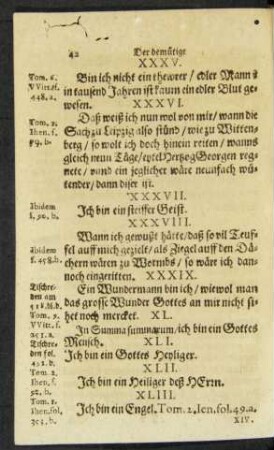 42 Der demütige
XXXV.
Bin ich nicht ein thewrer / edler Mann
in tausend Jahren ist kaum ein edler Blut ge-
wesen. XXXVI.
Daß weiß ich nun wol von mir / wann die
Sach zu Leipzig also stünd / wie zu Witten-
berg / so wolt ich doch hinein reiten / wanns
gleich neun Täge / eytel Hertzog Georgen reg-
nete / vnnd ein jeglicher wäre neunfach wü-
tender / dann diser ist.
XXXVII.
Ich bin ein steiffer Geist.
XXXVIII.
Wann ich gewußt hätte / daß so vil Teuf-
fel auff mich gezielt / als Ziegel auff den Dä-
chern wären zu Wormbs / so wäre ich dan-
noch eingeritten. XXXIX.
Ein Wundermann bin ich / wiewol man
das grosse Wunder Gottes an mir nicht si-
het noch mercket. XL.
In Summa summarum / ich bin ein Gottes
Mensch. XLI.
Ich bin ein Gottes Heyliger.
XLII.
Ich bin ein Heiliger deß HErrn.
XLIII.
Ich bin ein Engel. Tom. 2. Ien. fol. 49. a.
XIV.
Tom. 6.
VVitt. f.
448. a.
Tom. 2.
Ihen. f.
59. b.
Ibidem
f. 50. b.
Ibidem
f. 458. b.
Tischre-
den am
Tom. 2.
VVitt. f.
251. a.
Tischre-
den fol.
Tom. 2.
Ihen. f.
52. b.
Tom. 2.
Ihen. fol.
353. b.